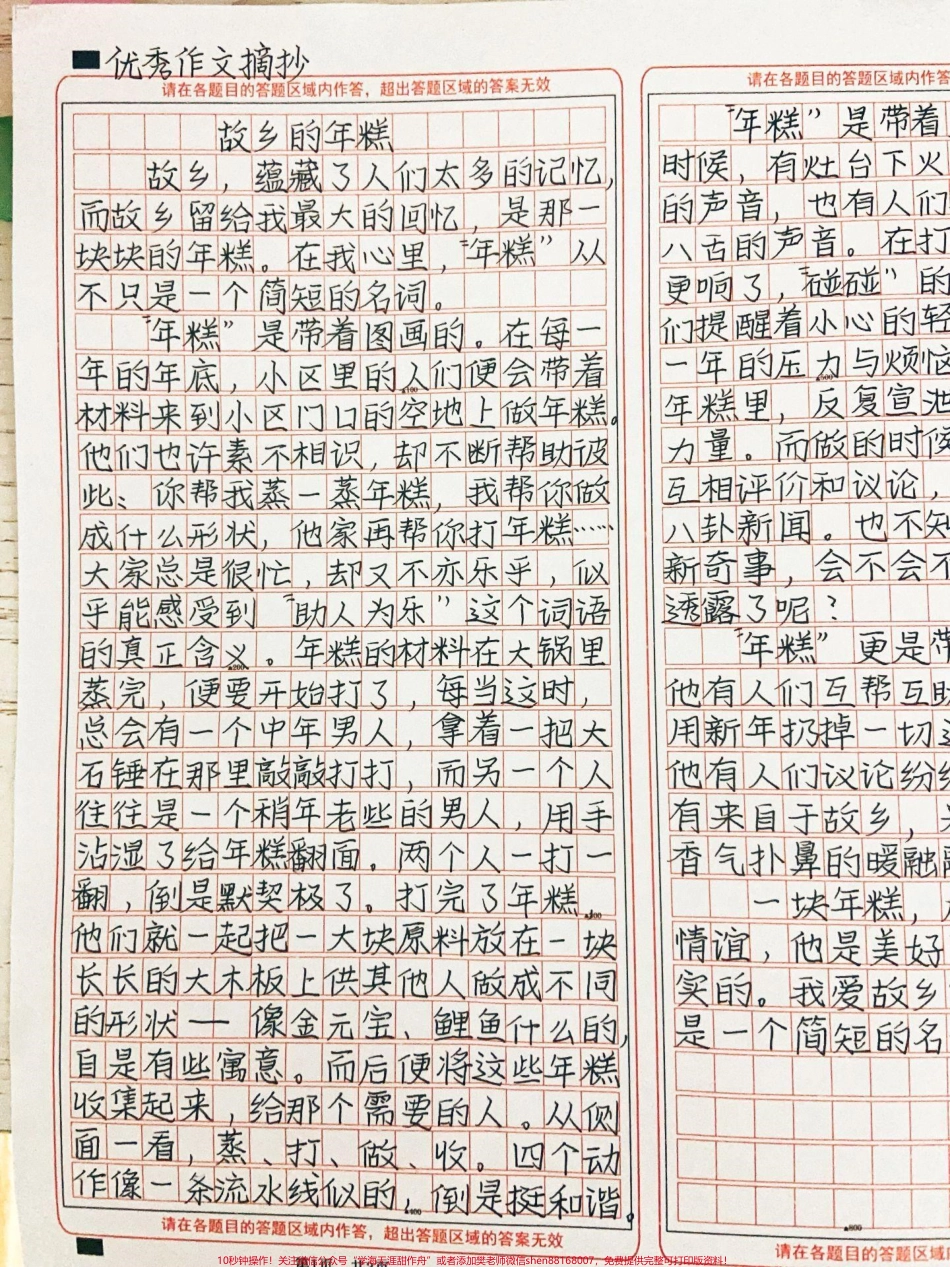 优秀作文摘抄
请在各题目的答题区域内作答，超出答题区域的答案无效
故乡的年糕
故乡，蕴藏了人们太多的记忆，
而故乡留给我最大的回忆，是那一
块块的年糕。在我心里，“年糕”从
不只是一个简短的名词。
“年糕”是带着图画的。在每一
年的年底，小区里的人们便会带着
材料来到小区门口的空地上做年糕。
他们也许素不相识，却不断帮助彼
此：你帮我蒸一蒸年糕，我帮你做
成什么形状，他家再帮你打年糕……
大家总是很忙，却又不亦乐乎，似
乎能感受到“助人为乐”这个词语
的真正含义。年糕的材料在大锅里
蒸完，便要开始打了，每当这时，
总会有一个中年男人，拿着一把大
石锤在那里敲敲打打，而另一个人
往往是一个稍年老些的男人，用手
沾湿了给年糕翻面。两个人一打一
翻，倒是默契极了。打完了年糕
他们就一起把一大块原料放在一块
长长的大木板上供其他人做成不同
的形状——像金元宝、鲤鱼什么的，
自是有些寓意。而后便将这些年糕
收集起来，给那个需要的人。从侧
面一看，蒸、打、做、收。四个动
作像一条流水线似的，倒是挺和谐。
请在各题目的答题区域内作答，超出答题区域的答案无效
请在各题目的答题区域内作答
“年糕”是带着
时候，有灶台下火
的声音，也有人们
八舌的声音。在打
更响了，“碰碰”的
们提醒着小心的轻
一年的压力与烦恼
年糕里，反复宣泄
力量。而做的时候
互相评价和议论，
八卦新闻。也不知
新奇事，会不会不
透露了呢？
“年糕”更是带
他有人们互帮互助
用新年扔掉一切
他有人们议论纷纷
有来自于故乡，
香气扑鼻的暖融融
一块年糕，
情谊，他是美好
实的。我爱故乡
是一个简短的名
请在各题目的答题区域内作答
10秒钟操作！关注微信公众号“学海无涯甜作舟”或者添加樊老师微信shen88168007，免费提供完整可打印版资料！